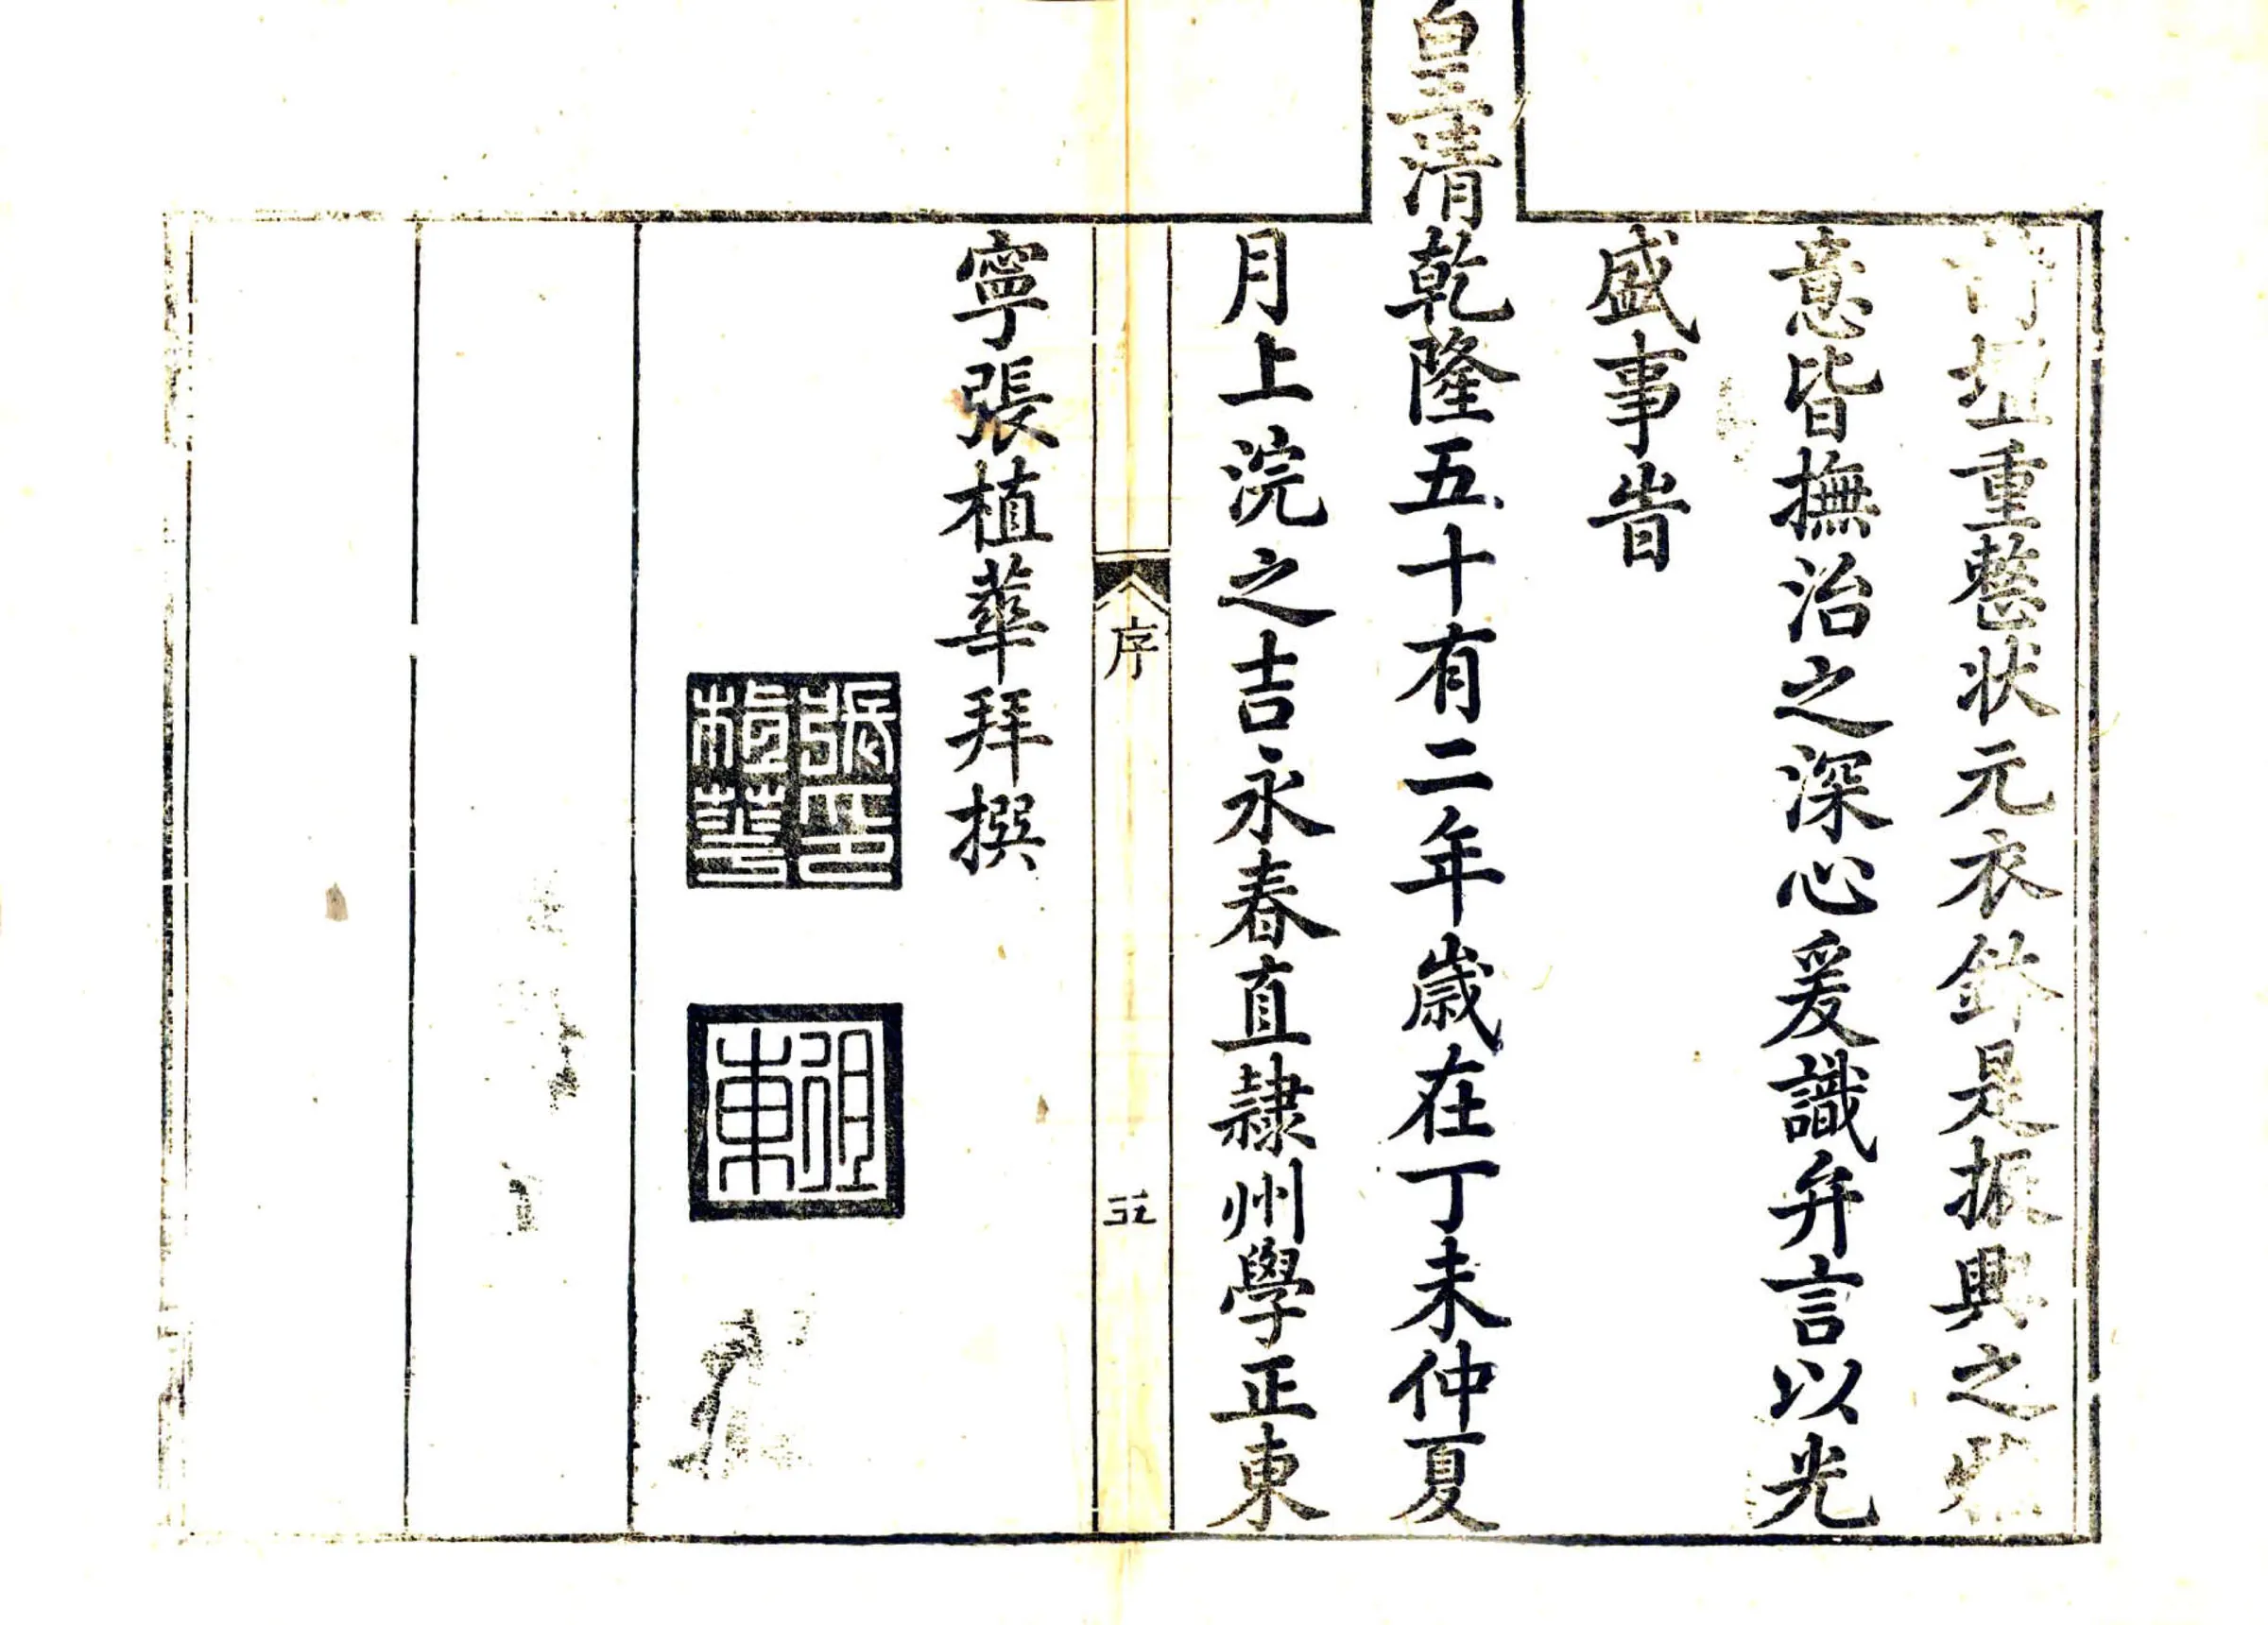 壇重整状元衣鉢是振興之
意皆撫治之深心爰識弁言以光
盛事旹
皇清乾隆五十有二年歲在丁未仲夏
月上浣之吉永春直隸州學正東
序 五
寧張植華拜撰
張印植華
徂東